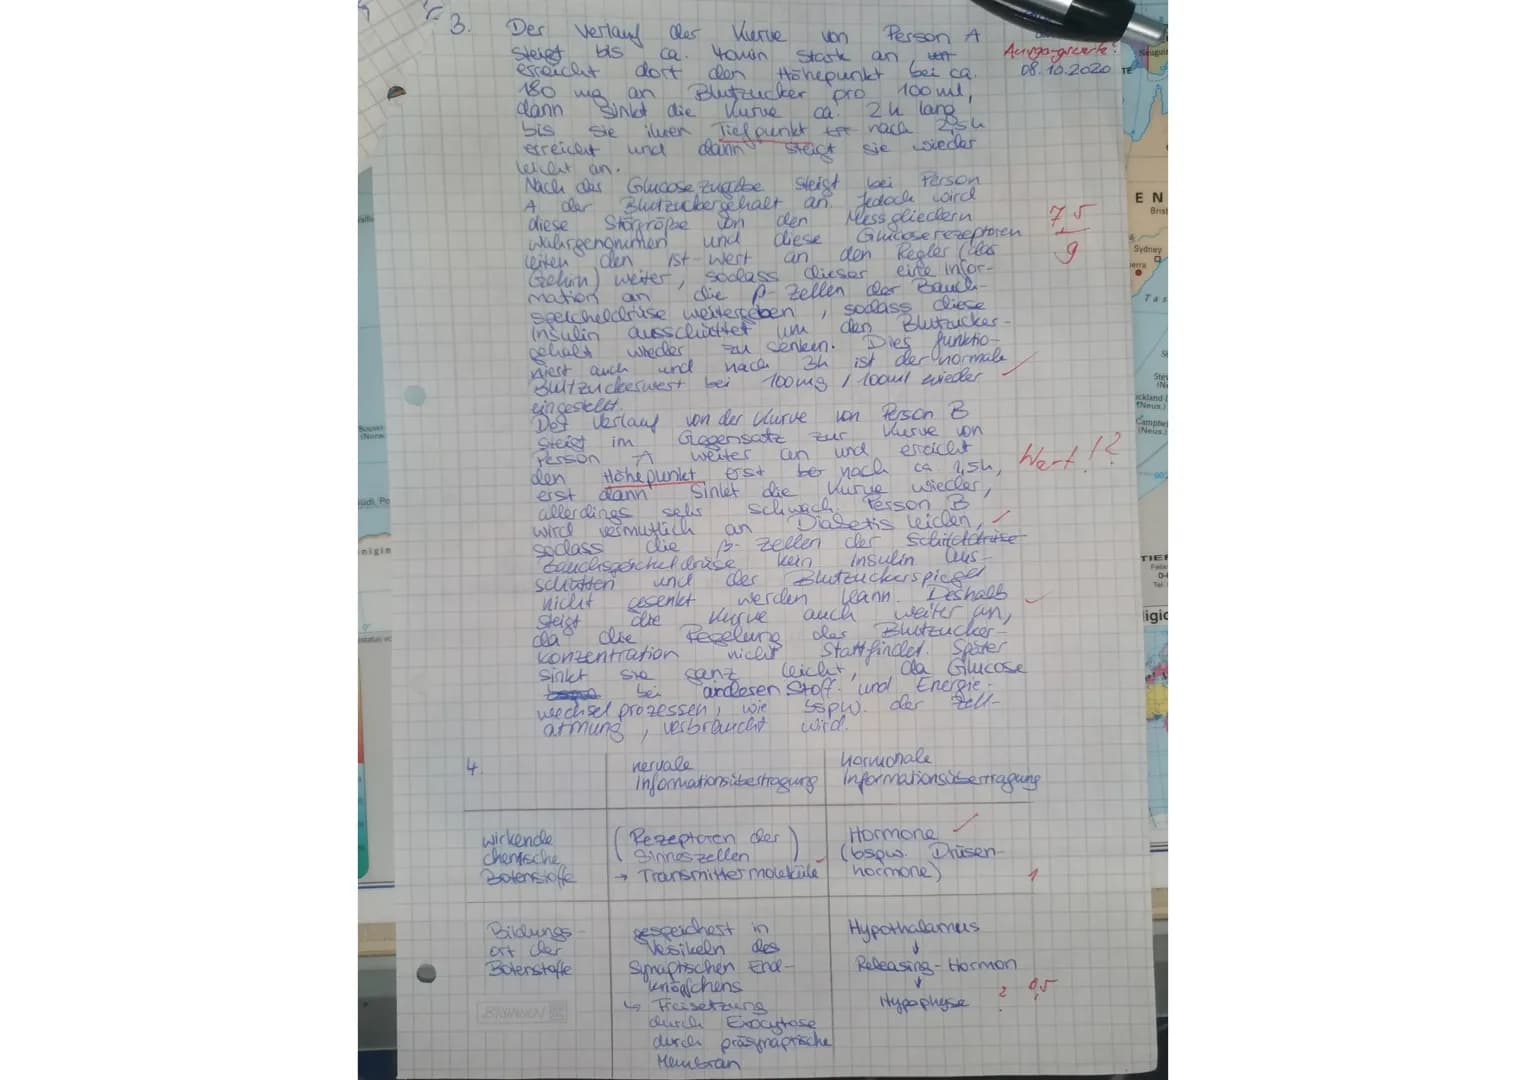 3. Der Verlauf der Kurve von Person A
steigt bis ca. 40min stark an
erreicht dort den Höhepunkt bei ca.
180 mg an Blutzucker pro 100 ml,
dann sinkt die Kurve ca. 2h lang
bis sie ihren Tiefpunkt nach 2,5h
erreicht und dann steigt sie wieder
leicht an.
Ausgangswerte?
08.10.2020
Nach der Glucosezugabe steigt bei Person
A der Blutzuckergehalt an. Jedoch wird
diese Störgröße von den Messgliedern
wahrgenommen und diese Glucoserezeptoren
leiten den ist-Wert an den Regler (das
Gehirn) weiter, sodass dieser eine Infor-
mation an die β-Zellen der Bauch-
speicheldrüse weitergeben, sodass diese
Insulin ausschüttet um den Blutzucker-
gehalt wieder zu senken. Dies funktio-
niert auch und nach 3h ist der normale
Blutzuckerwert bei 100mg / 100ml wieder
eingestellt.
7,5
9
Der Verlauf von der Kurve von Person B
steigt im Gegensatz zur Kurve von
Person A weiter an und erreicht
den Höhepunkt erst bei nach ca 1,5h,
erst dann sinkt die Kurve wieder,
allerdings sehr schwach. Person B
wird vermutlich an Diabetis leiden,
sodass die β-Zellen der Schilddrüse
Bauchspeicheldrüse kein Insulin aus-
schütten und der Blutzuckerspiegel
nicht gesenkt werden kann. Deshalb
steigt die Kurve auch weiter an,
da die Regelung der Blutzucker-
konzentration nicht stattfindet. Später
sinkt sie ganz leicht, da Glucose
bei anderen Stoff- und Energie-
wechselprozessen, wie bspw. der Zell-
atmung, verbraucht wird.
Wert!?
4.
nervale
Informationsübertragung
hormonale
Informationsübertragung
wirkende
chemische
Botenstoffe
(Rezeptoren der
Sinneszellen)
→ Transmittermoleküle
Hormone
(bspw. Drüsen-
hormone)
1
Bildungs-
ort der
Botenstoffe
gespeichert in
Vesikeln des
Synaptischen End-
knöpfchens
↳ Freisetzung
durch Exocytose
durch präsynaptische
Membran
Hypothalamus
↓
Releasing-Hormon
↓
Hypophyse
? 0,5
BRUNNEN
EN
Sydney